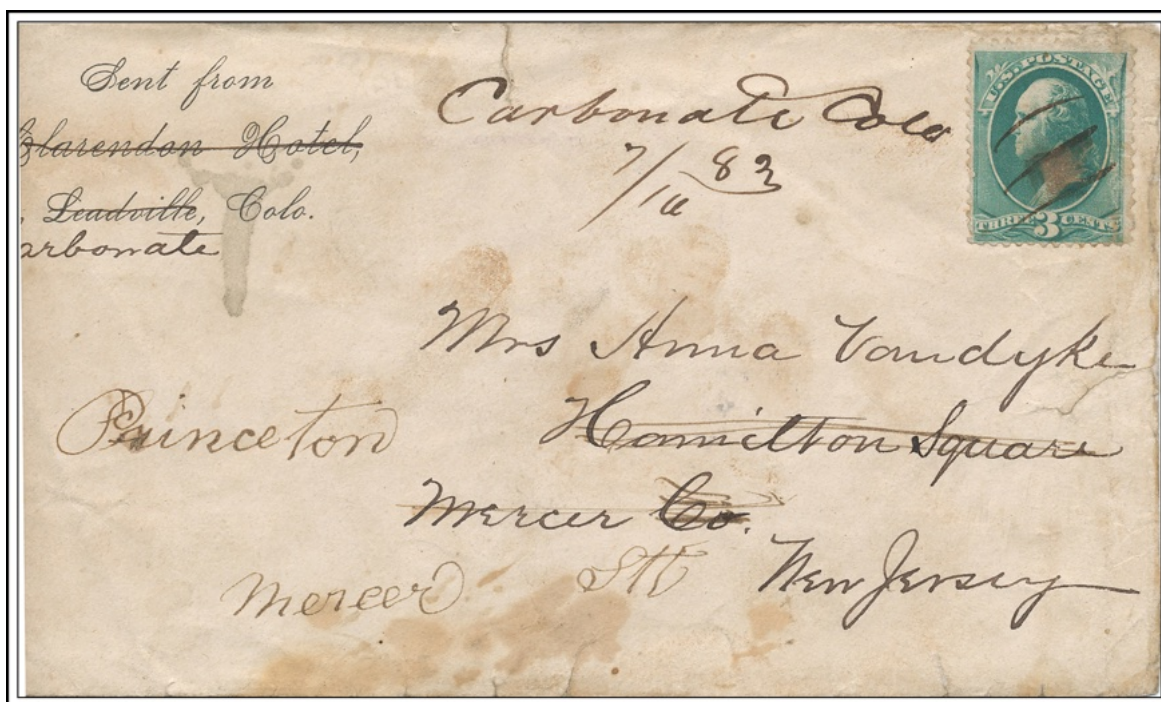 Sent from
Clarendon Hotel,
Leadville, Colo.
arbonate
Carbonate Colo
7/16 83
U.S. POSTAGE
THREE 3 CENTS
Mrs Anna Vandyke
Hamilton Square
Princeton
Mercer Co.
New Jersey
Mercer Stt